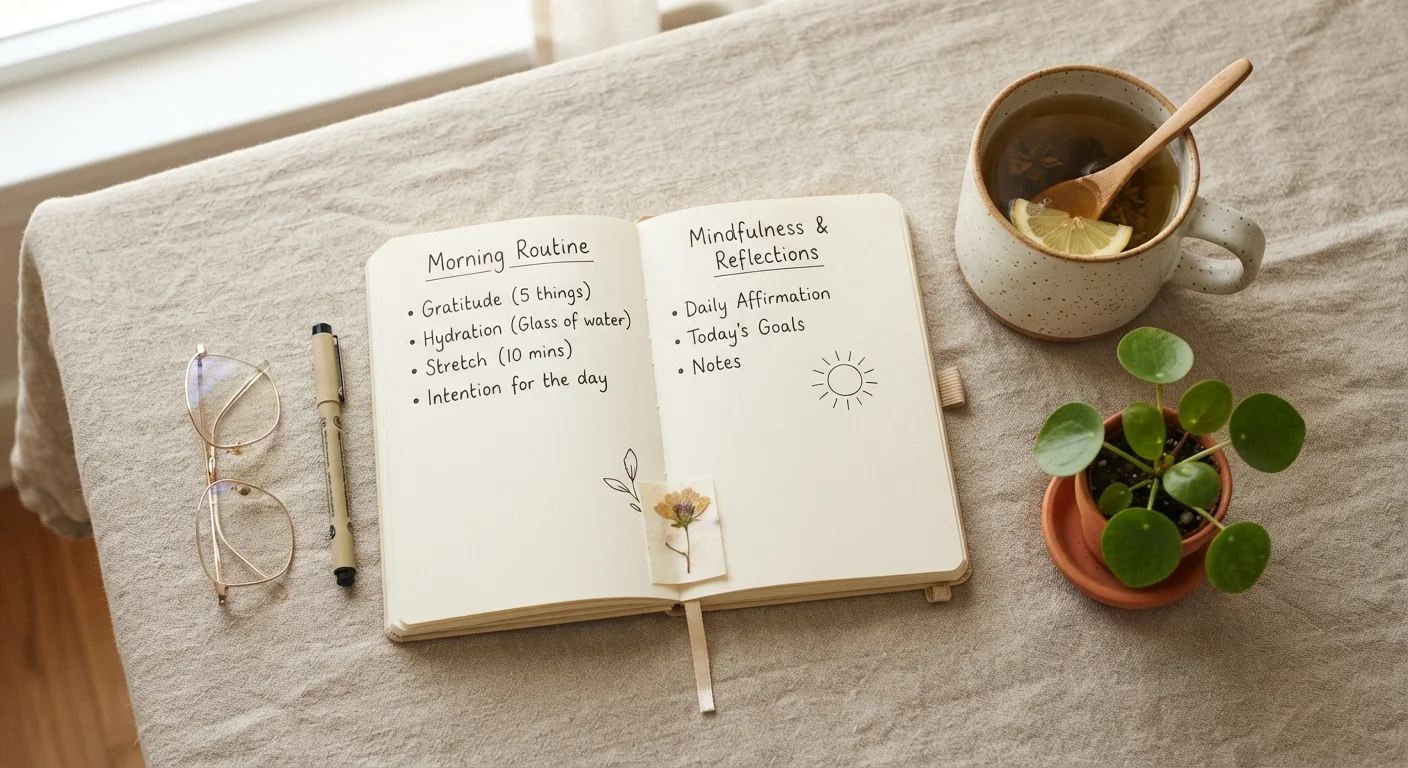 Morning Routine
• Gratitude (5 things)
• Hydration (Glass of water)
• Stretch (10 mins)
• Intention for the day
Mindfulness &
Reflections
• Daily Affirmation
• Today's Goals
• Notes